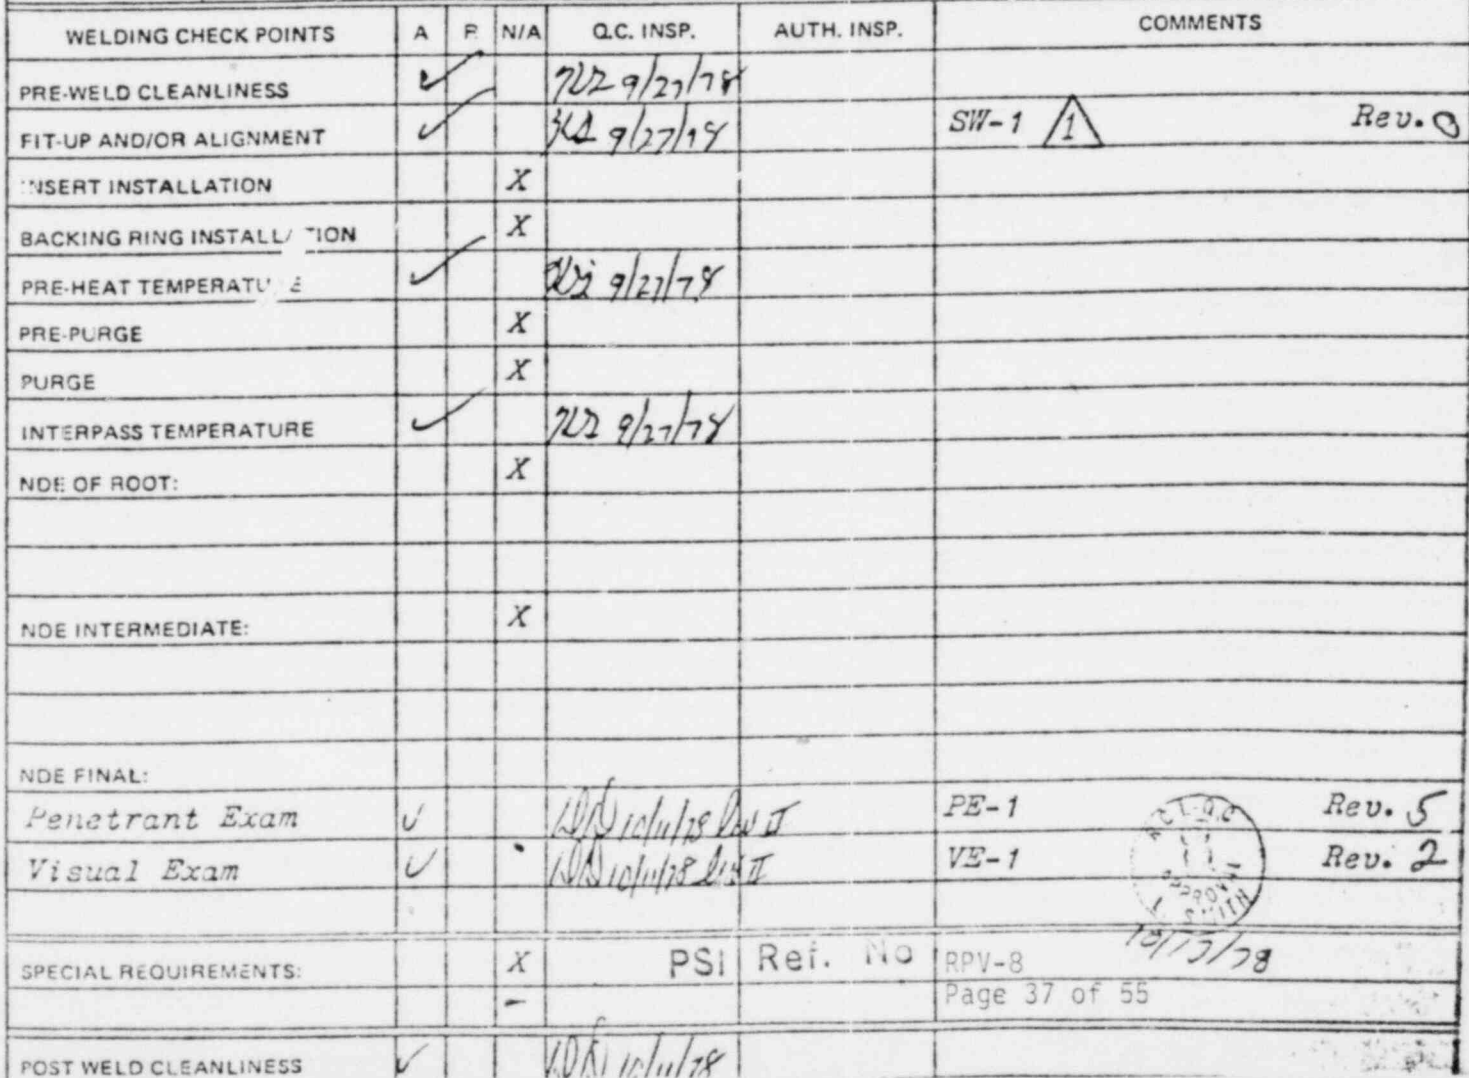 WELDING CHECK POINTS A R N/A Q.C. INSP. AUTH. INSP. COMMENTS
PRE-WELD CLEANLINESS ✓ 9/27/78
FIT-UP AND/OR ALIGNMENT ✓ 9/27/78 SW-1 1 Rev. 0
INSERT INSTALLATION X
BACKING RING INSTALL TION X
PRE-HEAT TEMPERATU E ✓ 9/27/78
PRE-PURGE X
PURGE X
INTERPASS TEMPERATURE ✓ 9/27/78
NDE OF ROOT: X
NDE INTERMEDIATE: X
NDE FINAL:
Penetrant Exam ✓ 10/11/78 Lev II PE-1 Rev. 5
Visual Exam ✓ 10/11/78 Lev II VE-1 Rev. 2
RCI-QC
APPROVAL
T SMITH
SPECIAL REQUIREMENTS: X PSI Ref. No RPV-8 10/17/78
- Page 37 of 55
POST WELD CLEANLINESS ✓ 10/11/78